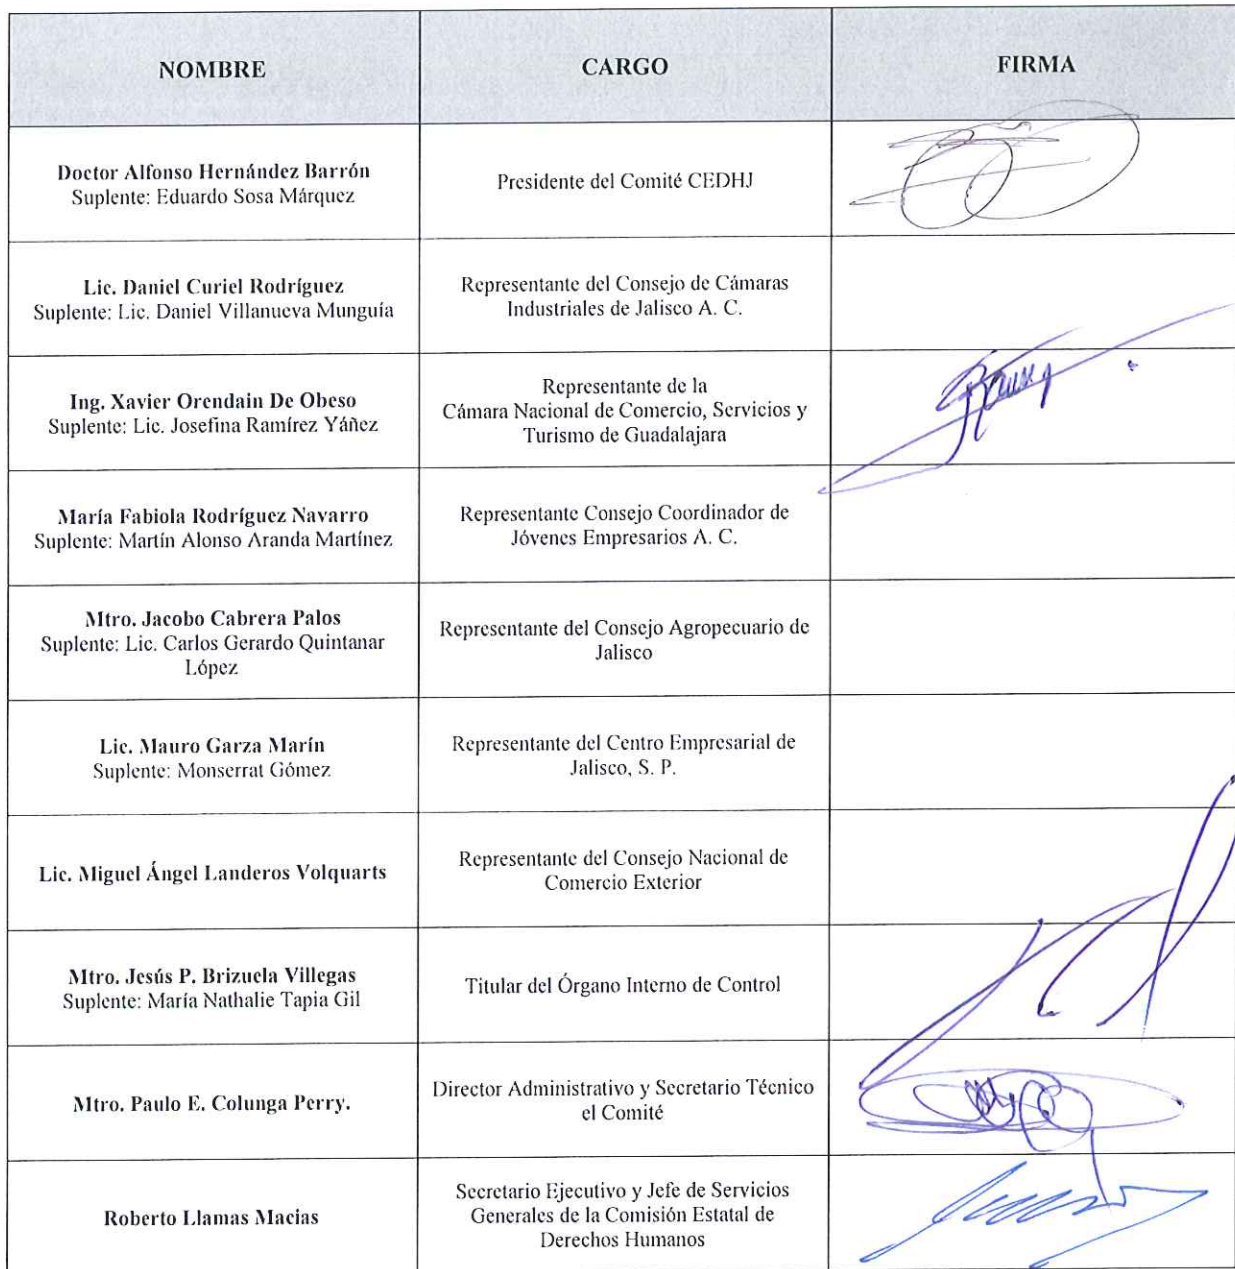 NOMBRE CARGO FIRMA
Doctor Alfonso Hernández Barrón
Suplente: Eduardo Sosa Márquez
Presidente del Comité CEDHJ
Lic. Daniel Curiel Rodríguez
Suplente: Lic. Daniel Villanueva Munguía
Representante del Consejo de Cámaras
Industriales de Jalisco A. C.
Ing. Xavier Orendain De Obeso
Suplente: Lic. Josefina Ramírez Yáñez
Representante de la
Cámara Nacional de Comercio, Servicios y
Turismo de Guadalajara
María Fabiola Rodríguez Navarro
Suplente: Martín Alonso Aranda Martínez
Representante Consejo Coordinador de
Jóvenes Empresarios A. C.
Mtro. Jacobo Cabrera Palos
Suplente: Lic. Carlos Gerardo Quintanar
López
Representante del Consejo Agropecuario de
Jalisco
Lic. Mauro Garza Marín
Suplente: Monserrat Gómez
Representante del Centro Empresarial de
Jalisco, S. P.
Lic. Miguel Ángel Landeros Volquarts
Representante del Consejo Nacional de
Comercio Exterior
Mtro. Jesús P. Brizuela Villegas
Suplente: María Nathalie Tapia Gil
Titular del Órgano Interno de Control
Mtro. Paulo E. Colunga Perry.
Director Administrativo y Secretario Técnico
el Comité
Roberto Llamas Macias
Secretario Ejecutivo y Jefe de Servicios
Generales de la Comisión Estatal de
Derechos Humanos